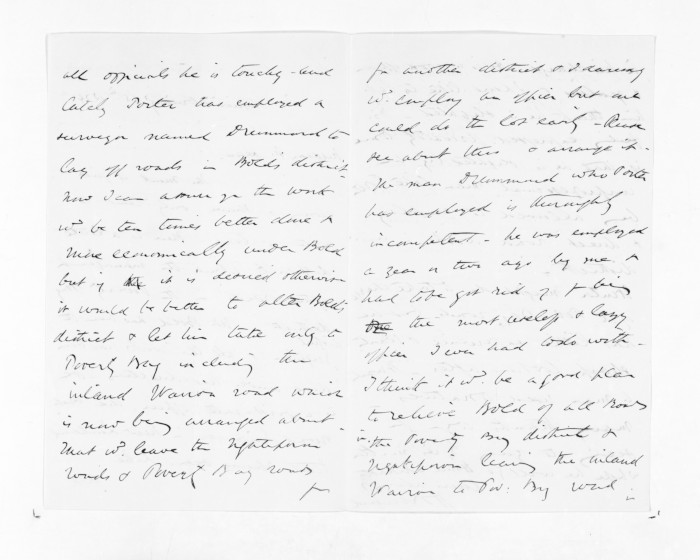 all officials he is touchy - and
lately Porter has employed a
surveyor named Drummond to
lay off roads in Bold's district
now I can assure you the work
wd. be ten times better done &
more economically under Bold
but if it is desired otherwise
it would be better to alter Bold's
district & let him take only to
Poverty Bay including the
inland Wairoa road which
is now being arranged about -
That wd. leave the Ngatiporou
roads & Poverty Bay roads
for
for another district & I daresay
wd. employ an officer but one
could do the lot easily - Please
see about this & arrange it -
The man Drummond who Porter
has employed is thoroughly
incompetent - he was employed
a year or two ago by me &
had to be got rid of for being
the most useless & lazy
officer I ever had to do with -
I think it wd. be a good plan
to relieve Bold of all Roads
in the Poverty Bay district &
Ngatiporou leaving the inland
Wairoa to Pov: Bay road -